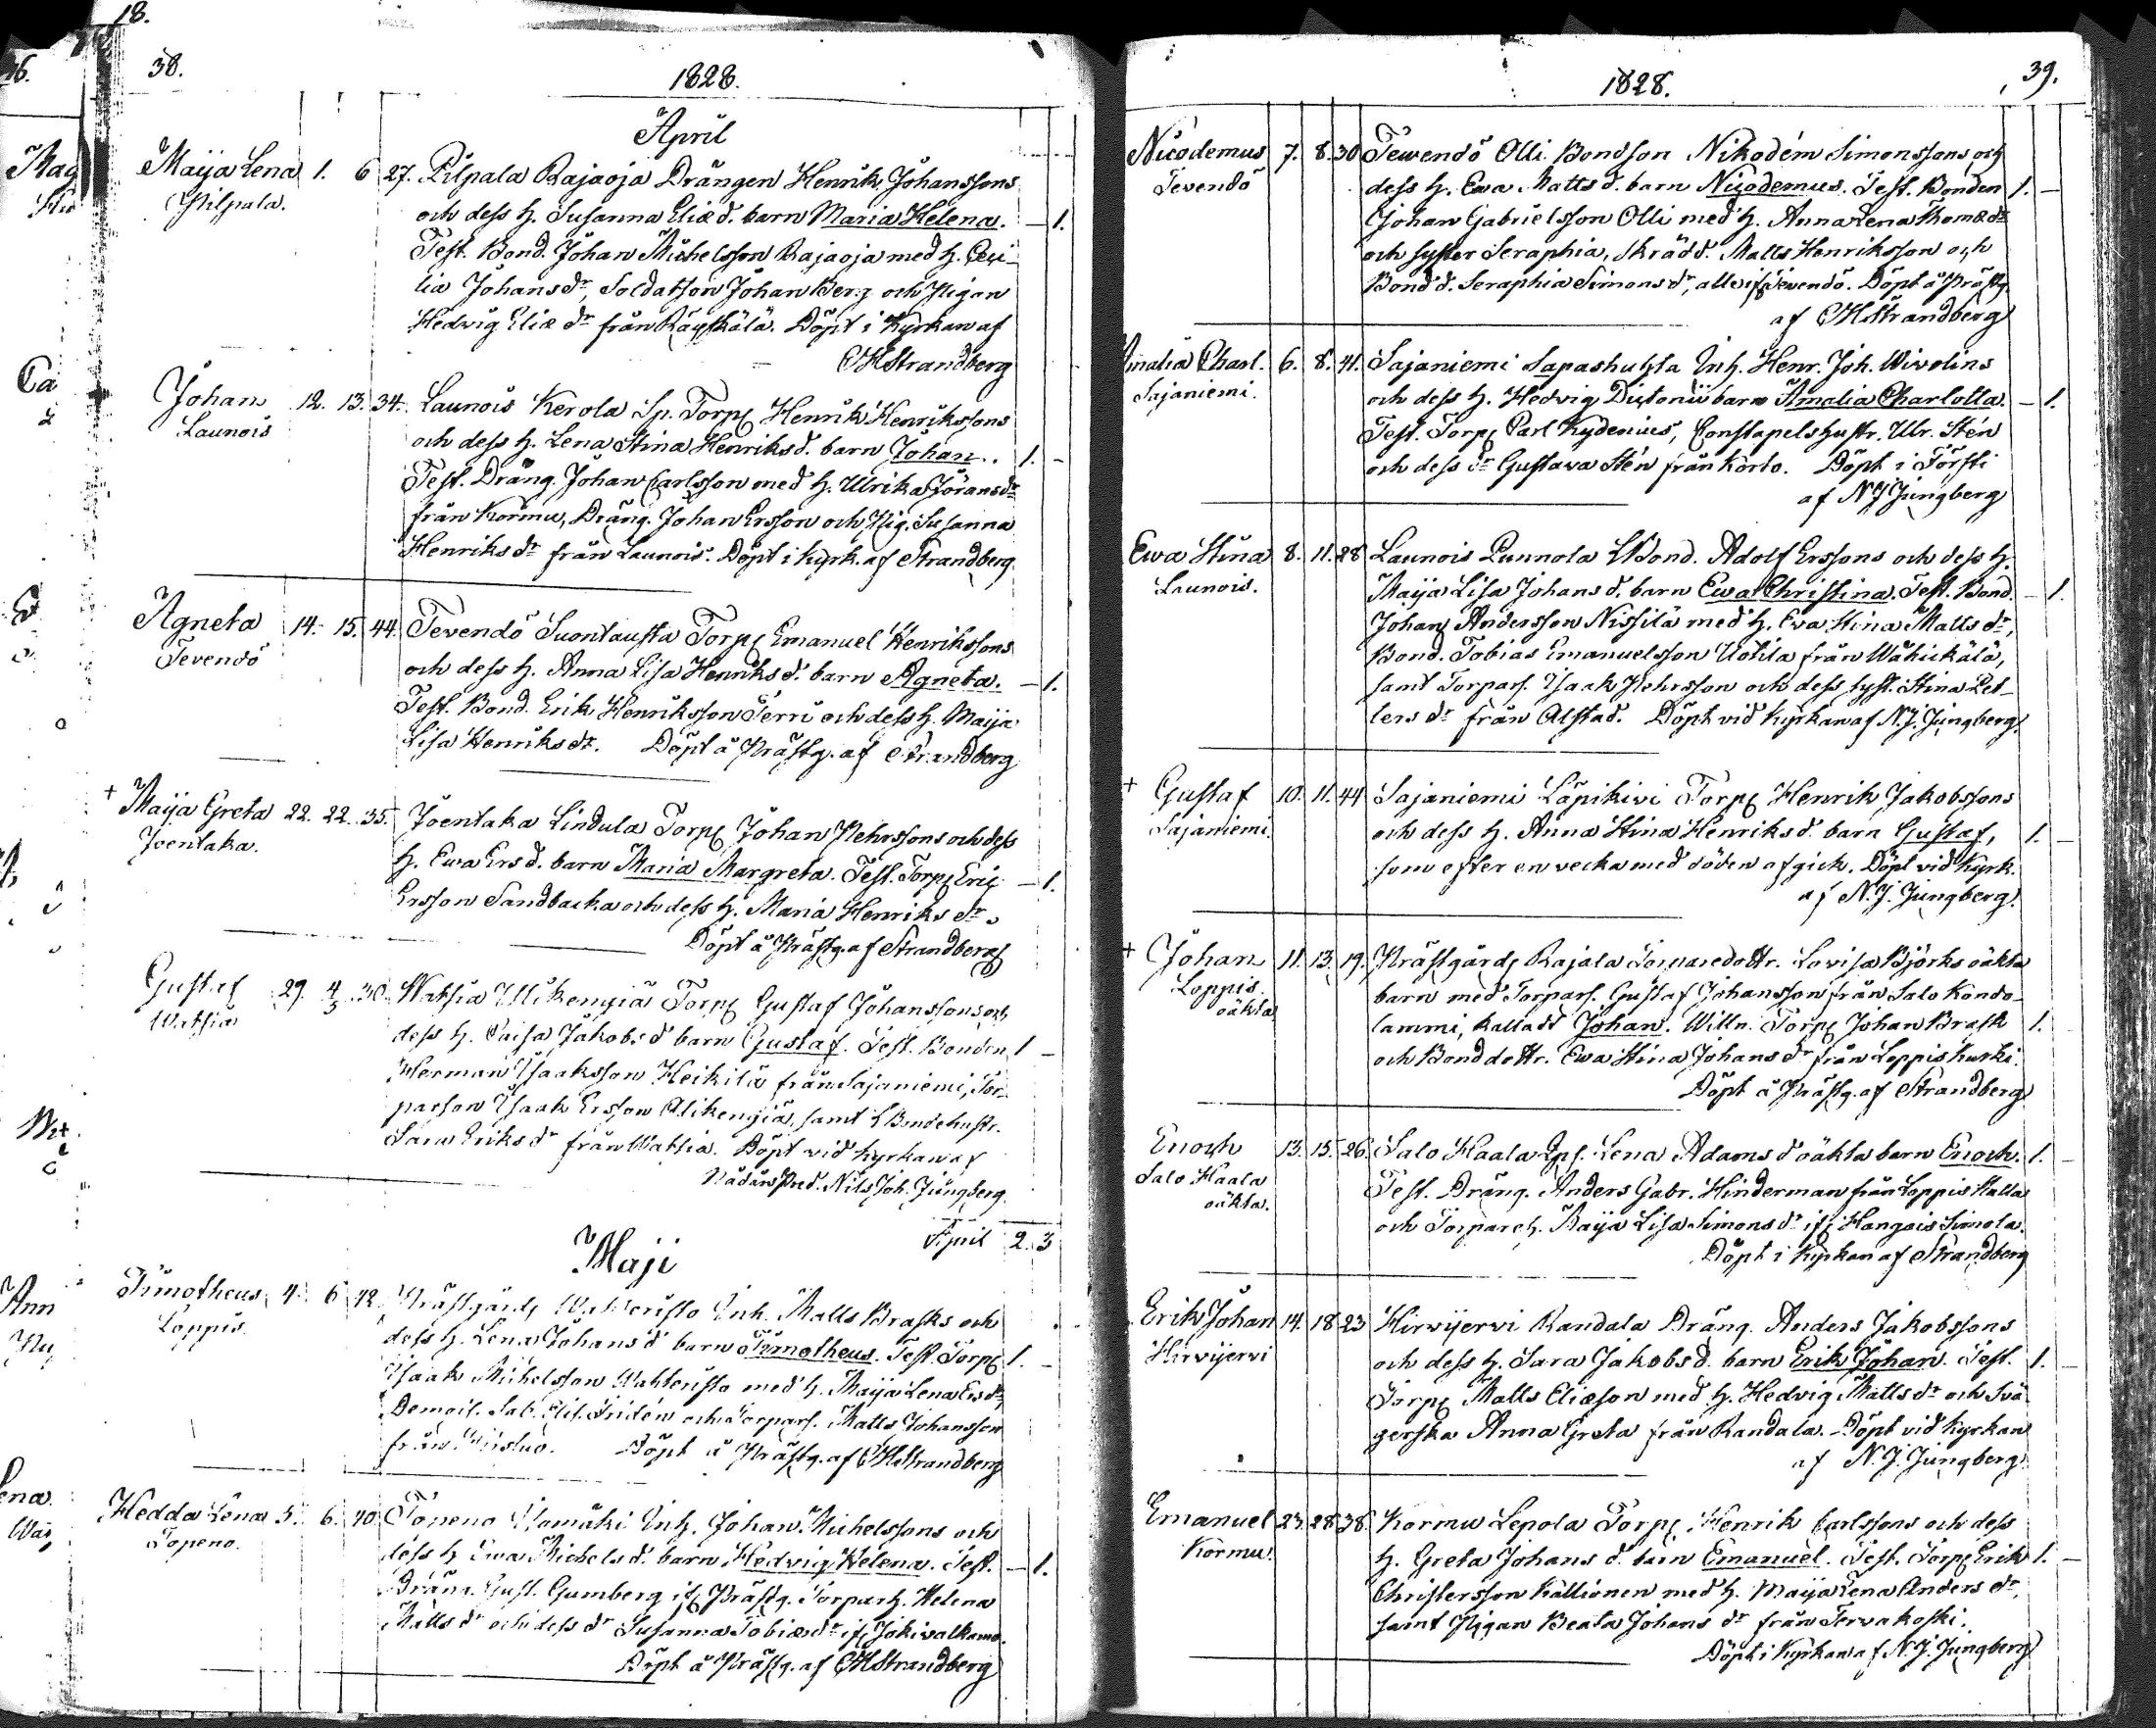 18.
38.
1828.
April
Maija Lena 1. 6 27. Pilpala Rajaoja Drängen Henrik Johanssons
Pilpala. och dess h. Susanna Eliæ d. barn Maria Helena. — 1.
Test. Bond. Johan Michelsson Rajaoja med h. Ceci-
lia Johans dr, Soldatson Johan Berg och Pigan
Hedvig Eliæ dr från Räyskälä. Döpt i Kyrkan af
CHStrandberg
Johan 12. 13. 34. Launois Kerola Sp. Torp. Henrik Henrikssons
Launois och dess h. Lena Stina Henriks d. barn Johan. 1. –
Test. Dräng. Johan Carlsson med h. Ulrika Jörans dr
från Kormu, Dräng. Johan Ersson och Pig. Susanna
Henriks dr från Launois. Döpt i Kyrk. af Strandberg
Agneta 14. 15. 44. Tevendö Suontausta Torp. Emanuel Henrikssons
Tevendö och dess h. Anna Lisa Henriks d. barn Agneta. — 1.
Test. Bond. Erik Henriksson Terri och dess h. Maija
Lisa Henriks dr. Döpt å Prästg. af Strandberg
+ Maija Greta 22. 22. 35. Joentaka Lindula Torp. Johan Pehrssons och dess
Joentaka. h. Ewa Ers d. barn Maria Margreta. Test. Torp. Eric — 1.
Ersson Sandbacka och dess h. Maria Henriks dr.
Döpt å Prästg. af Strandberg
Gustaf 29. 4/5 30. Watsia Ylikenyiä Torp. Gustaf Johanssons och
Watsia dess h. Caisa Jakobs d barn Gustaf. Test. Bonden 1 –
Herman Isaaksson Heikilä från Sajaniemi, Tor-
parson Isaak Ersson Alikenyiä, samt LBondehustr.
Sara Eriks dr från Watsia. Döpt vid Kyrkan af
Nådårs Pred. Nils Joh. Jungberg.
April 2. 3
Maji
Timotheus 4. 6 42. Prästgårds Inh. Matts Brasks och
Loppis. dess h. Lena Johans d barn Timotheus. Test. Torp. 1. –
Isaak Michelsson Wahteristo med h. Maija Lena Ers dr,
Demoil. Sab. Elis. Fridén och Torpars. Matts Johansson
från Döpt å Prästg. af CHStrandberg
Hedda Lena 5. 6. 40. Topeno Yjamäki Inh. Johan Michelssons och
Topeno. dess h Ewa Michels d. barn Hedvig Helena. Test. — 1.
Dräng. Gust. Gumberg if. Prästg. Torparh. Helena
Matts dr och dess dr Susanna Tobiæ dr if. Jokivalkama.
Döpt å Prästg. af CHStrandberg
1828.
39.
Nicodemus 7. 8. 30 Tewendö Olli Bondson Nikodém Simonssons och
Tevendö dess h. Ewa Matts d. barn Nicodemus. Test. Bonden 1. –
Johan Gabrielsson Olli med h. Anna Lena Thomæ dr
och syster Seraphia, Skrädd. Matts Henriksson och
Bond d. Seraphia Simons dr, alle if. Tevendö. Döpt å Prästg.
af CHStrandberg
Amalia Charl. 6. 8. 41. Sajaniemi Sapashuhta Inh. Henr. Joh. Wivolins
Sajaniemi. och dess h. Hedvig barn Amalia Charlotta. — 1.
Test. Torp. Carl Kydenius, Constapelshustr. Ulr. Stén
och dess dr Gustava Stén från Korto. Döpt i Försti
af NJJungberg
Ewa Stina 8. 11. 28 Launois Punnola LBond. Adolf Erssons och dess h.
Launois. Maija Lisa Johans d. barn Ewa Christina. Test. Bond. — 1.
Johan Andersson Nissilä med h. Eva Stina Matts dr,
Bond. Tobias Emanuelsson Uotila från Wähickälä,
samt Torpars. Isaak Pehrsson och dess syst. Stina Pet-
ters dr från Alstad. Döpt vid Kyrkan af N.J. Jungberg.
+ Gustaf 10. 11. 44 Sajaniemi Läpikivi Torp. Henrik Jakobssons
Sajaniemi och dess h. Anna Stina Henriks d. barn Gustaf, 1. –
som efter en vecka med döden afgick. Döpt vid Kyrk.
af N.J. Jungberg.
+ Johan 11. 13. 19. Prästgårds Rajala Torparedottr. Lovisa Björks oäkta
Loppis. barn med Torpars. Gustaf Johansson från Salo Kondo-
oäkta lammi, kalladt Johan. Wittn. Torp. Johan Brask 1.
och Bonddottr. Ewa Stina Johans dr från Loppis Kurki.
Döpt å Prästg. af Strandberg
Enoch 13. 15. 26. Salo Haala Lena Adams d oäkta barn Enoch. 1. –
Salo Haala Test. Dräng. Anders Gabr. Hinderman från Loppis Halla
oäkta. och Torpareh. Maija Lisa Simons dr if. Hangois Simola.
Döpt i Kyrkan af Strandberg
Erik Johan 14. 18 23 Hirvijervi Randala Dräng. Anders Jakobssons
Hirvijervi och dess h. Sara Jakobs d. barn Erik Johan. Test. 1. –
Torp. Matts Eliæson med h. Hedvig Matts dr och Svä-
gerska Anna Greta från Randala. Döpt vid Kyrkan
af N.J. Jungberg.
Emanuel 23. 28. 38. Kormu Lepola Torp. Henrik Carlssons och dess
Kormu. h. Greta Johans d. barn Emanuel. Test. Torp. Erik 1. –
Christersson Kallionen med h. Maija Lena Anders dr,
samt Pigan Beata Johans dr från Tervakoski.
Döpt i Kyrkan af N.J. Jungberg